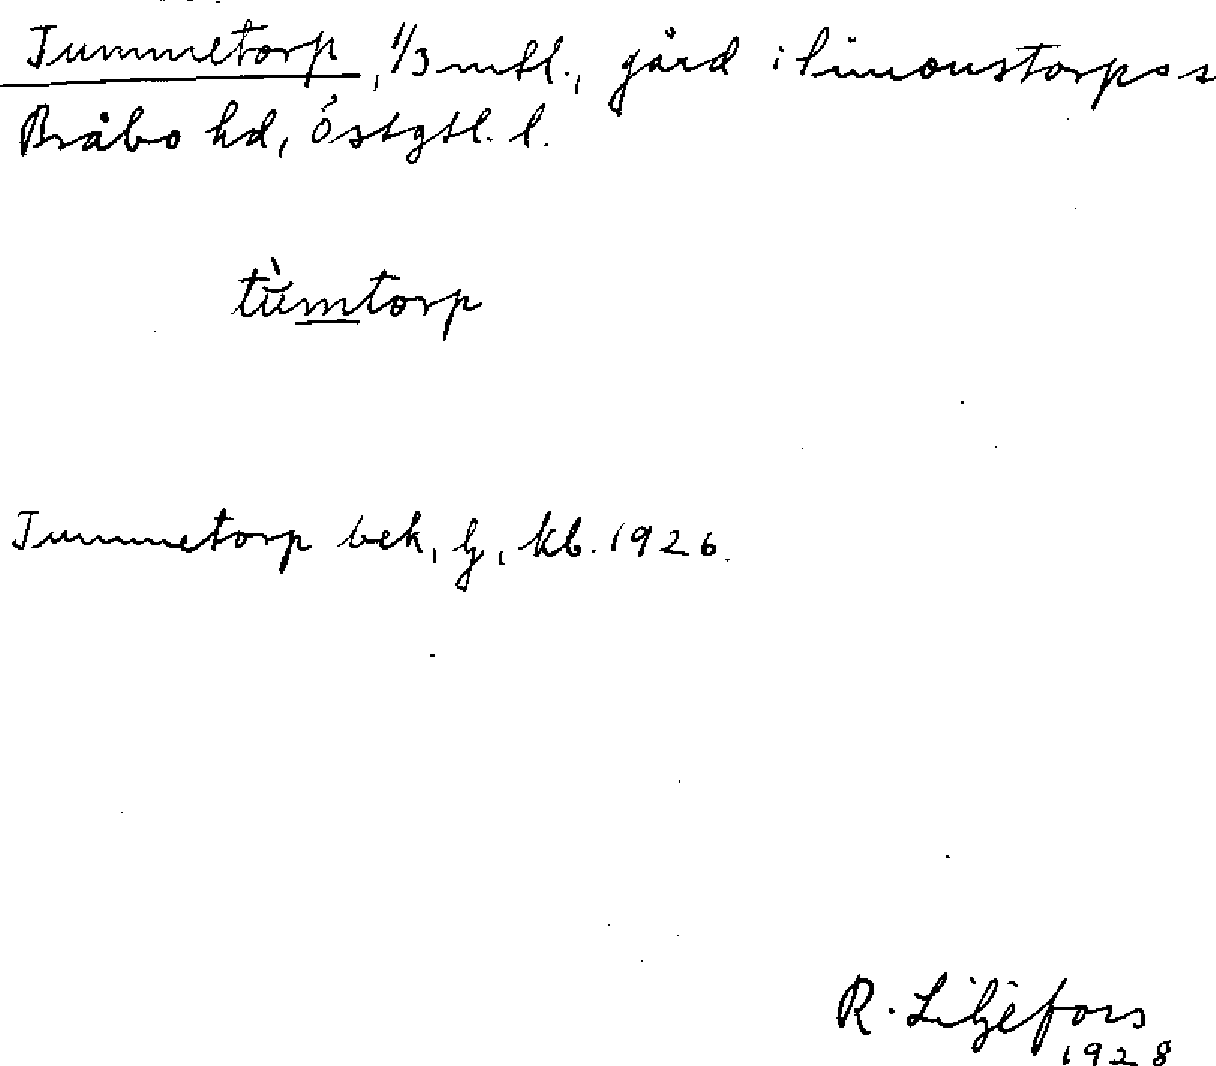 Tummetorp, 1/3 mtl., gård i Simonstorps s
Bråbo hd, Östgtl. l.
tùmtorp
Tummetorp bek, lj, kb. 1926.
R. Liljefors
1928